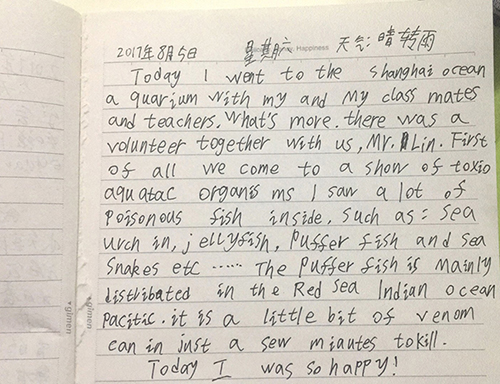 2017年8月5日 星期六 Happiness 天气: 晴转雨
Today I went to the shanghai ocean
a quarium with my and my class mates
and teachers. What's more. there was a
volunteer together with us, Mr. Lin. First
of all we come to a show of toxio
aquatac organis ms I saw a lot of
poisonous fish inside, such as: sea
urch in, jellyfish, puffer fish and sea
snakes etc …… The puffer fish is mainly
distributed in the Red Sea Indian ocean
Pacitic. it is a little bit of venom
can in just a sew miautes tokill.
Today I was so happy!
glimen
glimen